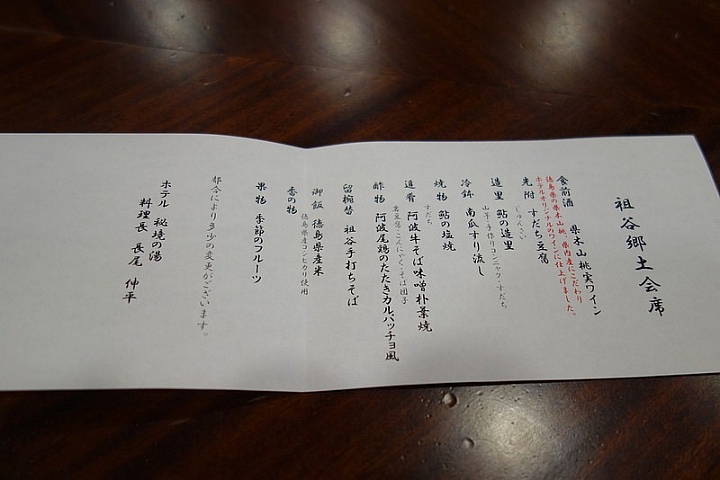 祖谷郷土会席
食前酒　県木山桃実ワイン
徳島県の県木山桃、県内産にこだわり
ホテルオリジナルのワインに仕上げました。
先附　すだち豆腐
じゅんさい
造里　鮎の造里
山芋・手作りコンニャク・すだち
冷鉢　南瓜すり流し
焼物　鮎の塩焼
すだち
進肴　阿波牛そば味噌朴葉焼
岩豆腐・こんにゃく・そば団子
酢物　阿波尾鶏のたたきカルパッチョ風
留椀替　祖谷手打ちそば
御飯　徳島県産米
徳島県産コシヒカリ使用
香の物
果物　季節のフルーツ
都合により多少の変更がございます。
ホテル　秘境の湯
料理長　長尾　伸平